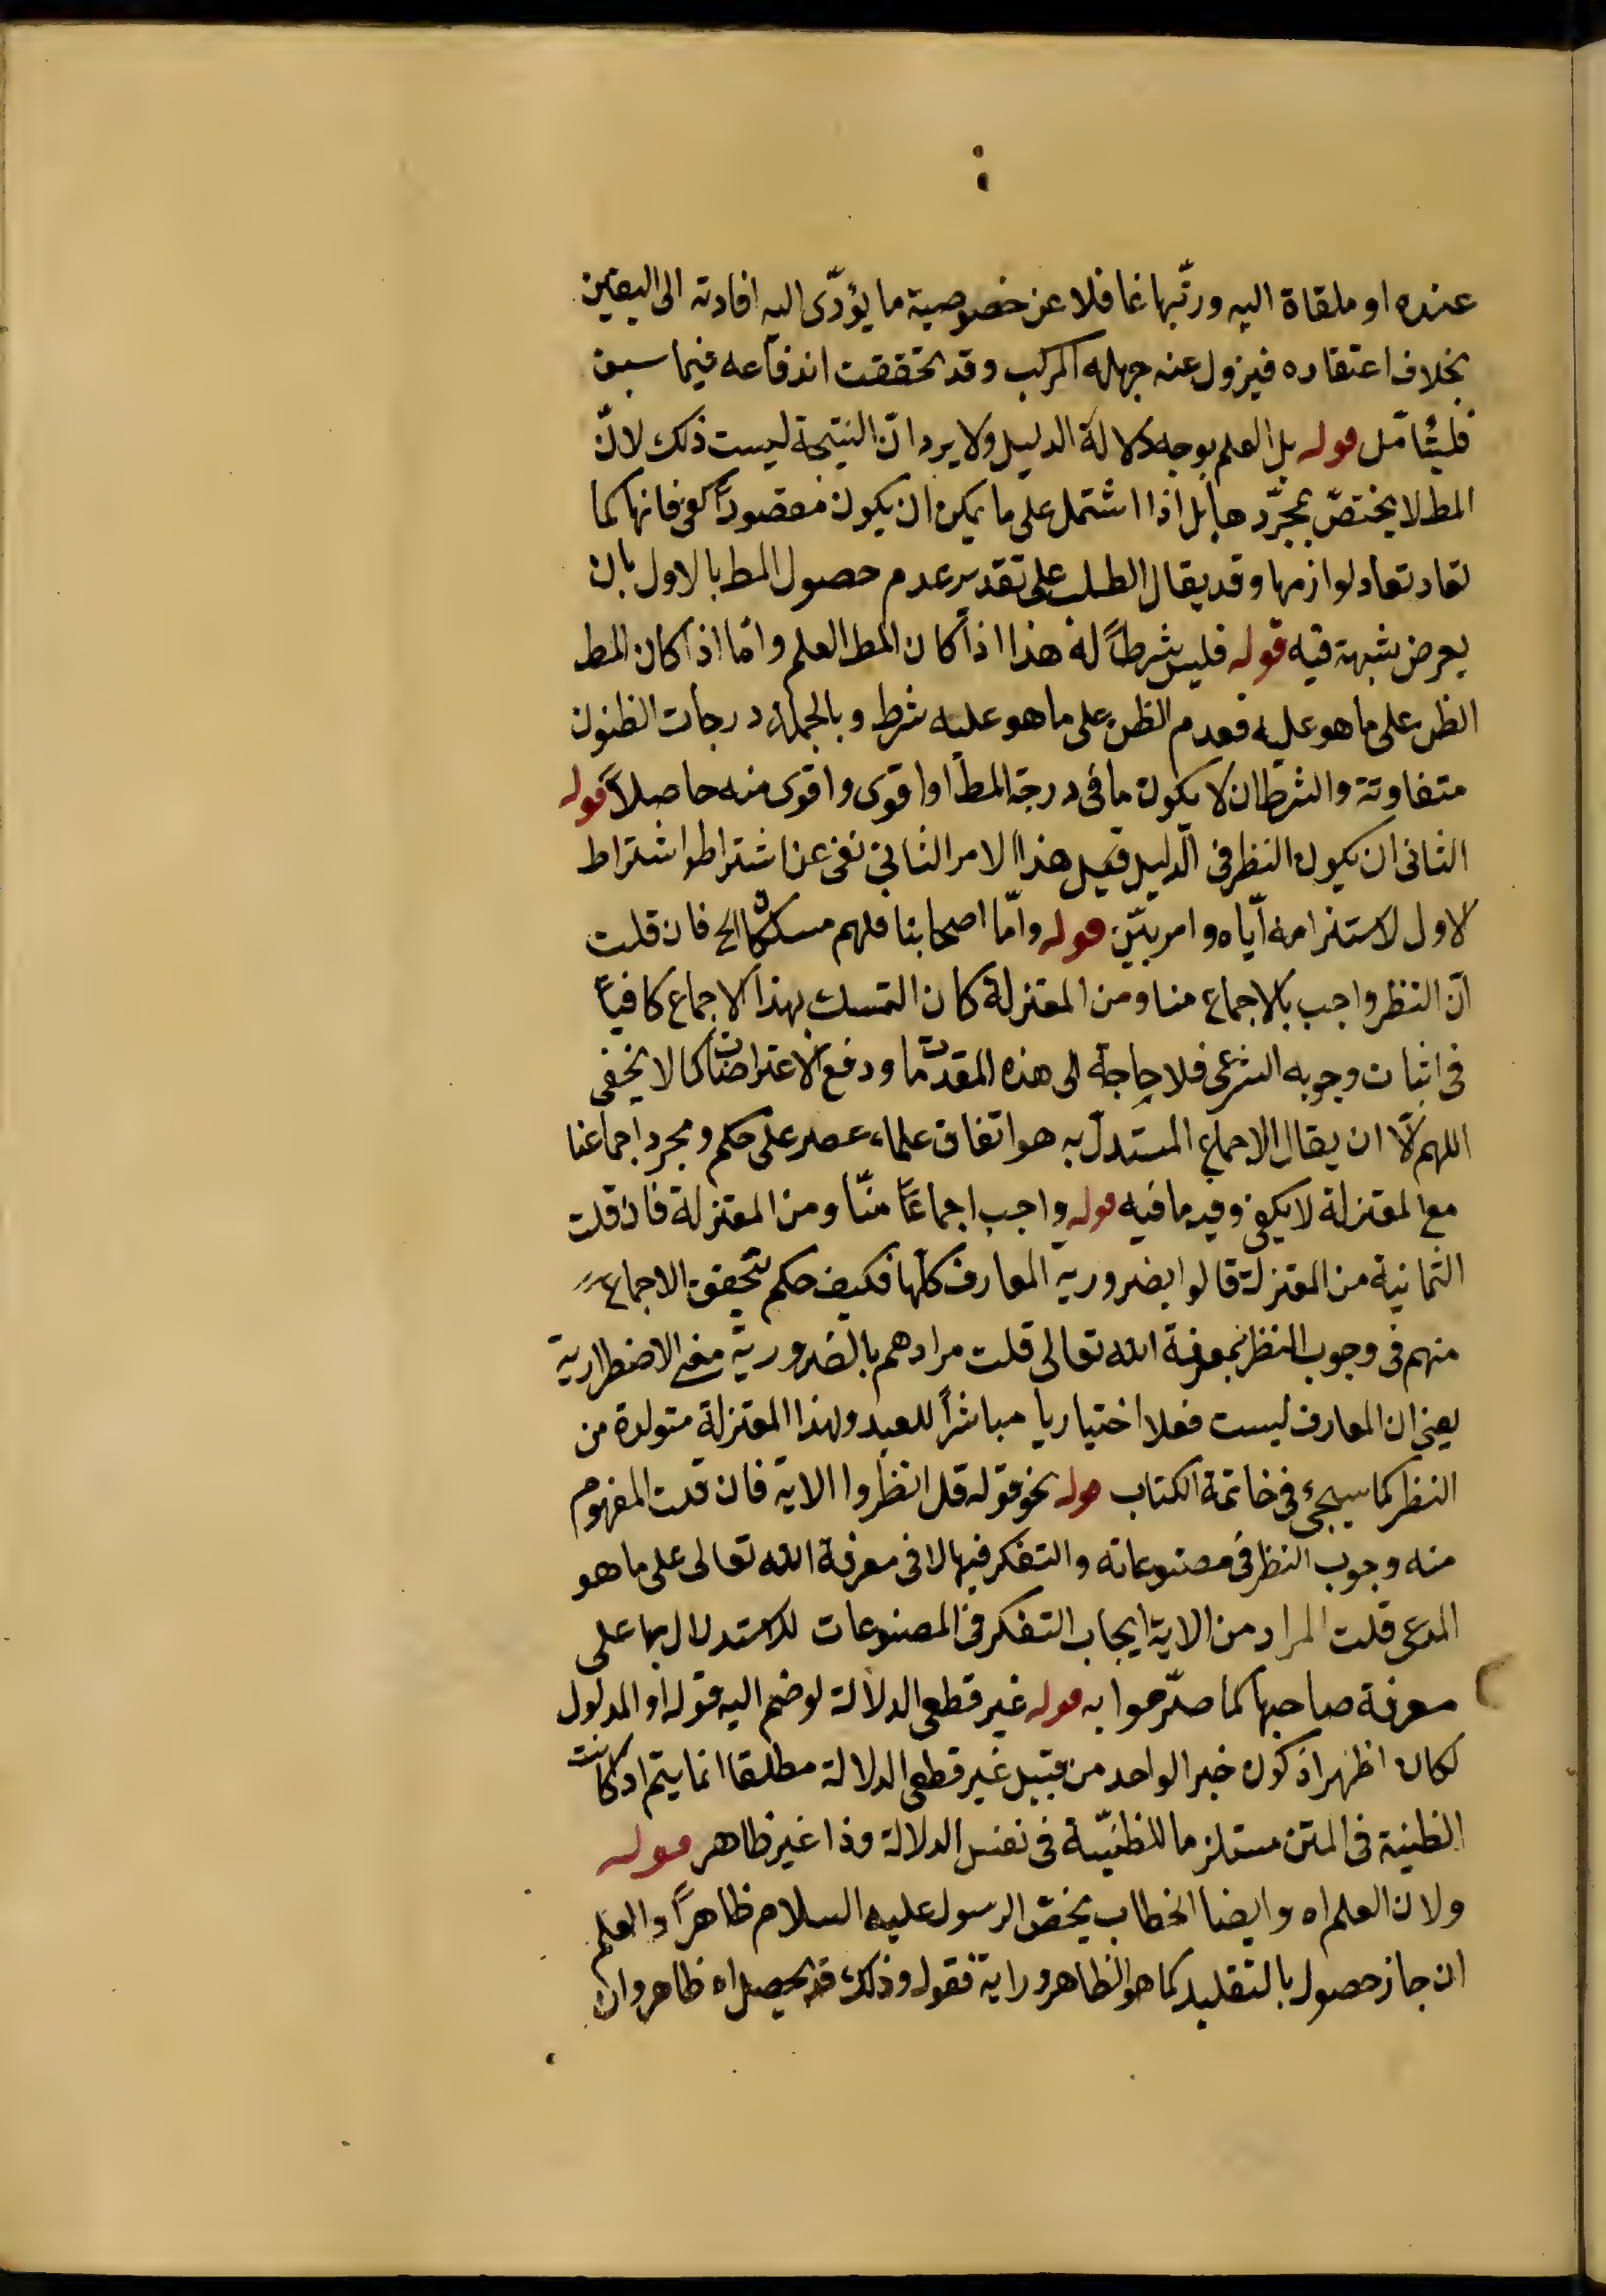 عنده او ملقاة اليه ورتّبها غافلا عن خصوصية ما يؤدّى اليه افادته الى اليقين
بخلاف اعتقاده فيزول عنه جهله المركب وقد تحققت اندفاعه فيما سبق
فليتأمّل قوله بل العلم بوجه دلالة الدليل ولا يرد انّ النتيجة ليست ذلك لانّ
المط لا يختصّ بمجرّدها بل اذا اشتمل على ما يمكن ان يكون مقصوداً كفى فانها كما
تعاد تعاد لوازمها وقد يقال الطلب على تقدير عدم حصول المط بالاول بان
يعرض شبهة فيه قوله فليس شرطاً له هذا اذا كان المط العلم وامّا اذا كان المط
الظن على ما هو عليه فعدم الظن على ما هو عليه شرط وبالجملة درجات الظنون
متفاوتة والشرط ان لا يكون ما فى درجة المط او اقوى واقوى منه حاصلاً قوله
الثانى ان يكون النظر فى الدليل قيل هذا الامر الثانى نفى عن اشتراطه اشتراط
لاول لاستلزامه ايّاه وامر بيّن قوله وامّا اصحابنا فلهم مسلكان الخ فان قلت
انّ النظر واجب بالاجماع منا ومن المعتزلة كان التمسك بهذا الاجماع كافياً
فى اثبات وجوبه الشرعى فلا حاجة الى هذه المقدّمات ودفع الاعتراضات كما لا يخفى
اللهم الّا ان يقال الاجماع المستدل به هو اتفاق علماء عصر على حكم ومجرد اجماعنا
مع المعتزلة لا يكفى وفيه ما فيه قوله واجب اجماعاً منّا ومن المعتزلة فان قلت
الثمانية من المعتزلة قالوا بضرورية المعارف كلّها فكيف حكم بتحقق الاجماع
منهم فى وجوب النظر بمعرفة الله تعالى قلت مرادهم بالضرورية معنى الاضطرارية
يعنى ان المعارف ليست فعلا اختياريا مباشراً للعبد ولهذا المعتزلة متولدة من
النظر كما سيجئ فى خاتمة الكتاب قوله نحو قوله قل انظروا الاية فان قلت المفهوم
منه وجوب النظر فى مصنوعاته والتفكر فيها لا فى معرفة الله تعالى على ما هو
المدعى قلت المراد من الاية ايجاب التفكر فى المصنوعات للاستدلال بها على
معرفة صاحبها كما صرّحوا به قوله غير قطعى الدلالة لو ضم اليه قوله او المدلول
لكان اظهر اذ كون خبر الواحد من قبيل غير قطعى الدلالة مطلقا انما يتم اذ كانت
الظنية فى المتن مستلزما للظنيّة فى نفس الدلالة وذا غير ظاهر قوله
ولان العلم اه وايضا الخطاب يخصّ الرسول عليه السلام ظاهراً والعلم
ان جاز حصول بالتقليد كما هو الظاهر وراية فقوله وذلك قد يحصل اه ظاهر وان